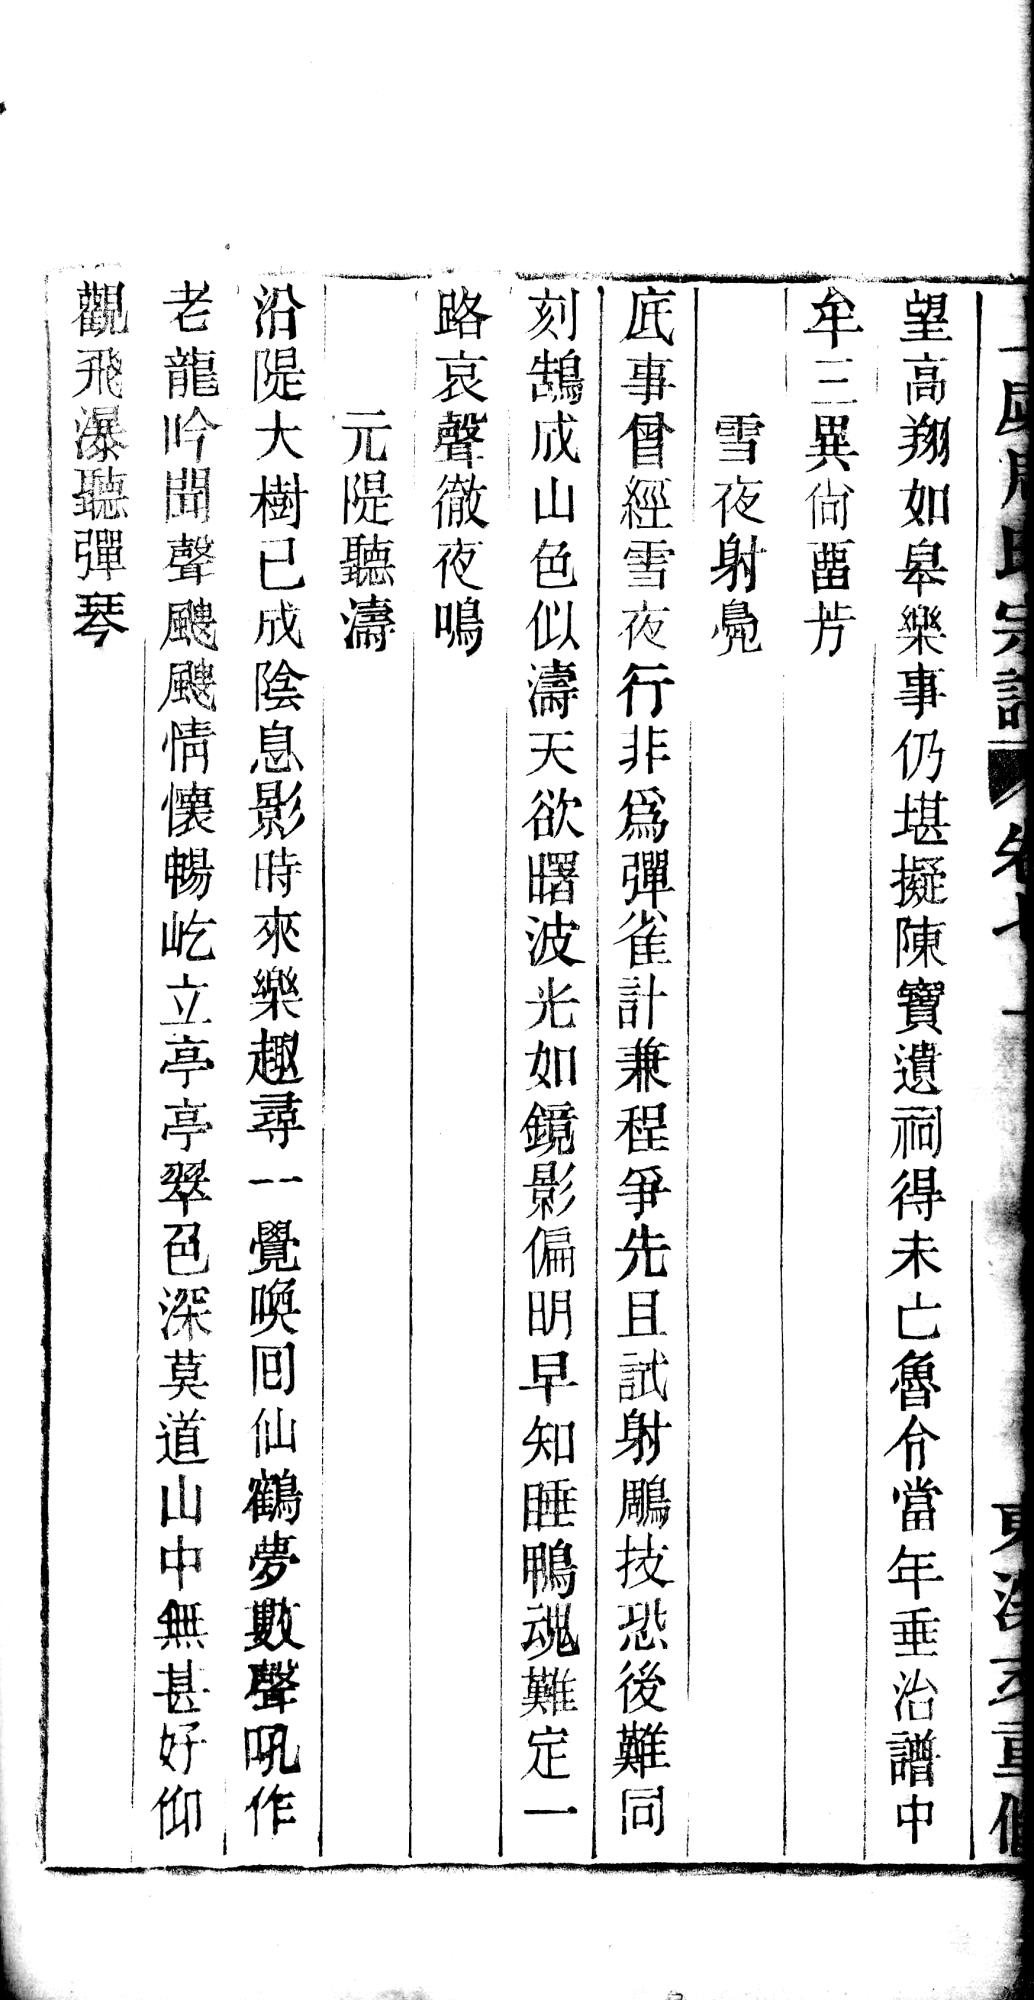 望高翔如皋樂事仍堪擬陳寶遺祠得未亡魯令當年垂治譜中
牟三異尙畱芳
雪夜射鳧
底事曾經雪夜行非爲彈雀計兼程爭先且試射鵰技恐後難同
刻鵠成山色似濤天欲曙波光如鏡影偏明早知睡鴨魂難定一
路哀聲徹夜鳴
元隄聽濤
沿隄大樹已成陰息影時來樂趣尋一覺喚囘仙鶴夢數聲吼作
老龍吟聞聲颼颼情懷暢屹立亭亭翠色深莫道山中無甚好仰
觀飛瀑聽彈琴